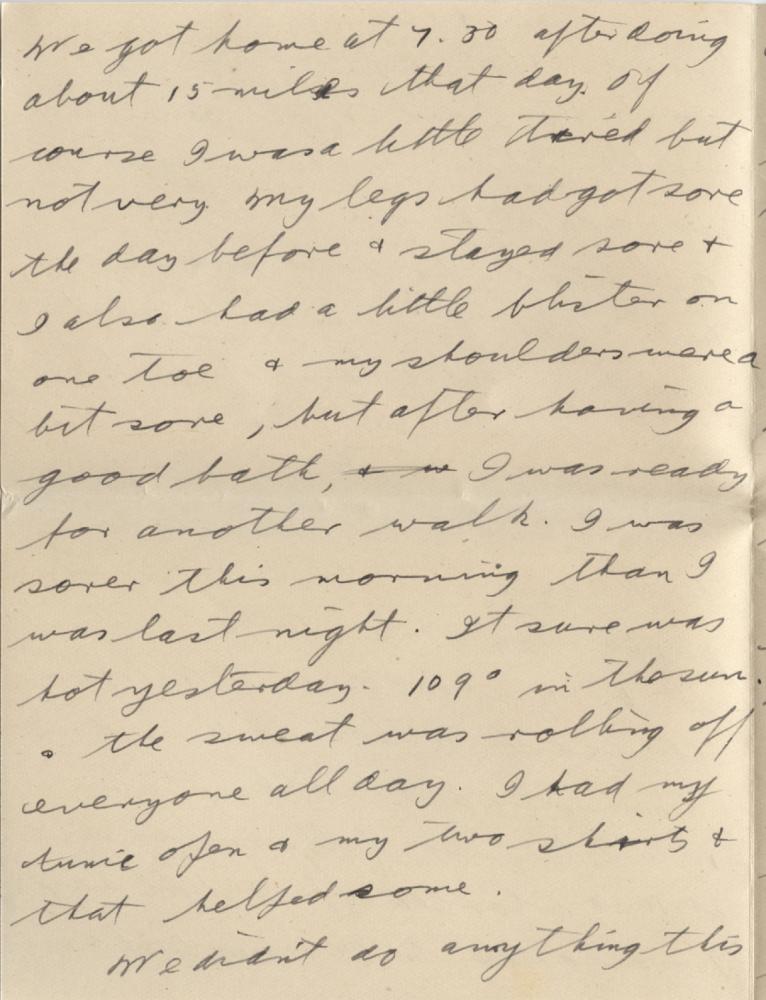 We got home at 7.30 after doing
about 15 miles that day. Of
course I was a little tired but
not very. My legs had got sore
the day before & stayed sore &
I also had a little blister on
one toe & my shoulders were a
bit sore, but after having a
good bath, & w I was ready
for another walk. I was
sorer this morning than I
was last night. It sure was
hot yesterday. 109° in the sun.
& the sweat was rolling off
everyone all day. I had my
tunic open & my two shirts &
that helped some.
We didn't do anything this